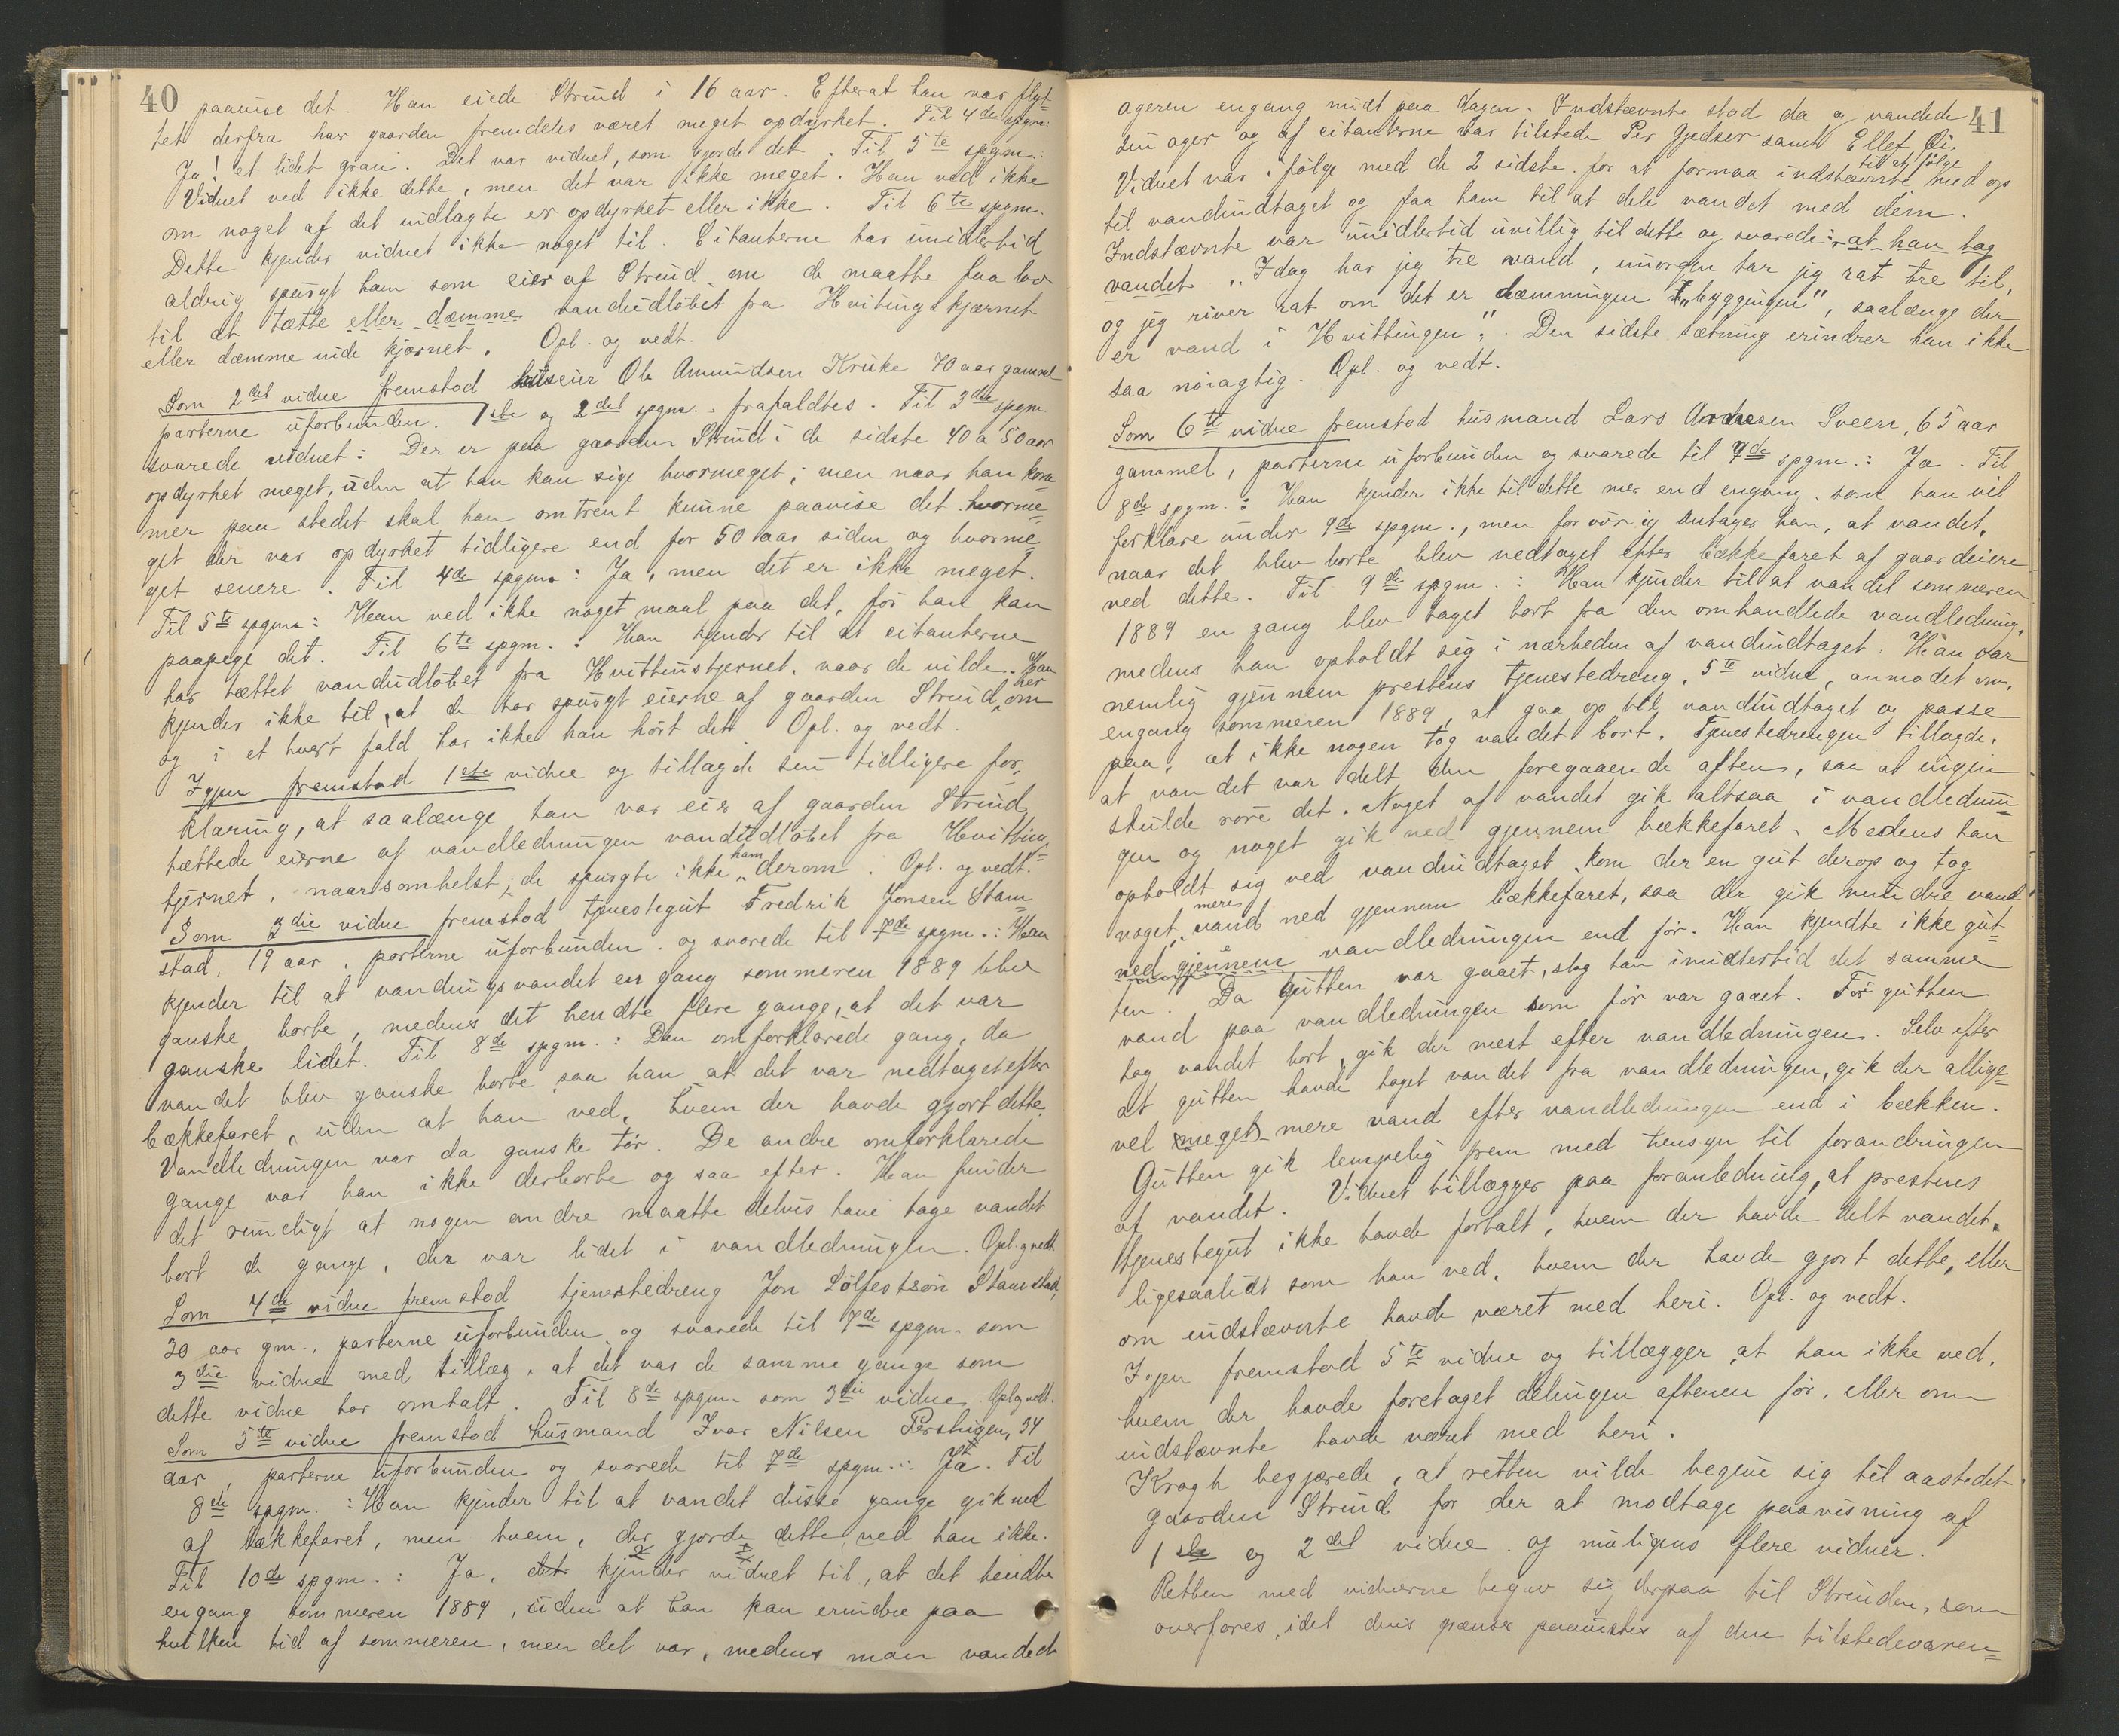 40
paavise det. Han eiede Strind i 16 aar. Efterat han var flyt-
tet derfra har gaarden fremdeles været meget opdyrket. Til 4de spgm:
Ja! et lidet gran. Det var vidnet, som gjorde det. Til 5te spgm.:
Vidnet ved ikke dette, men det var ikke meget. Han ved ikke
om noget af det indlagte er opdyrket eller ikke. Til 6te spgm.
Dette kjender vidnet ikke noget til. Citanterne har imidlertid
aldrig spurgt ham som eier af Strind, om de maatte faa lov
til at tætte eller dæmme vandudløbet fra Hvitingskjærnet
eller dæmme inde kjærnet. Opl. og vedt.
Som 2det vidne fremstod huseier Ole Amundsen Kruke 70 aar gammel
parterne uforbunden. 1ste og 2det spgm. frafaldtes. Til 3die spgm.
svarede vidnet: Der er paa gaarden Strind i de sidste 40 a 50 aar
opdyrket meget, uden at han kan sige hvormeget; men naar han kom-
mer paa stedet skal han omtrent kunne paavise det hvorme-
get der var opdyrket tidligere end for 50 aar siden og hvorme-
get senere. Til 4de spgm: Ja, men det er ikke meget.
Til 5te spgm: Han ved ikke noget maal paa det, før han kan
paapege det. Til 6te spgm.: Han kjender til at citanterne
har tættet vandudløbet fra Hvittingstjernet, naar de vilde. Han
kjender ikke til, at de har spurgt eierne af gaarden Strind herom
og i et hvert fald har ikke han hørt det. Opl. og vedt.
Igjen fremstod 1ste vidne og tillagde sin tidligere for-
klaring, at saalænge han var eier af gaarden Strind,
tættede eierne af vandledningen vandudløbet fra Hvitting-
tjernet, naarsomhelst; de spurgte ikke ham derom. Opl. og vedt.
Som 3die vidne fremstod tjenestegut Fredrik Jonsen Stam-
stad, 19 aar, parterne uforbunden og svarede til 7de spgm.: Han
kjender til at vandingsvandet en gang sommeren 1889 blev
ganske borte, medens det hendte flere gange, at det var
ganske lidet. Til 8de spgm.: Den omforklarede gang, da
vandet blev ganske borte, saa han at det var nedtaget efter
bækkefaret, uden at han ved, hvem der havde gjort dette.
Vandledningen var da ganske tør. De andre omforklarede
gange var han ikke derborte og saa efter. Han finder
det rimeligt at nogen andre maatte delvis have tage vandet
bort de gange, der var lidet i vandledningen. Opl. og vedt.
Som 4de vidne fremstod tjenestedreng Jon Sølfestsøn Stamstad,
20 aar gm., parterne uforbunden og svarede til 7de spgm. som
3die vidne med tillæg, at det var de samme gange som
dette vidne har omtalt. Til 8de spgm. som 3die vidne. Opl og vedt.
Som 5te vidne fremstod husmand Ivar Nilsen Perstuigen, 34
aar, parterne uforbunden og svarede til 7de spgm.: Ja. Til
8de spgm.: Han kjender til at vandet disse gange gik ned
af bækkefaret, men hvem, der gjorde dette ved han ikke.
Til 10de spgm.: Ja, det kjender vidnet til, at det hendte
engang sommeren 1889, uden at han kan erindre paa
hvilken tid af sommeren, men det var, medens man vandede
41
ageren engang midt paa dagen. Indstævnte stod da og vandede
sin ager og af citanterne var tilstede Per Gjedser samt Ellef
Vidnet var ifølge med de 2 sidste for at formaa indstævnte til at følge med op
til vandindtaget og faa ham til at dele vandet med dem.
Indstævnte var imidlertid uvillig til dette og svarede: at han tog
vandet „Idag har jeg tre vand, imorgen tar jeg rat tre til,
og jeg river rat om det er dæmningen „byggingen", saalænge der
er vand i Hvittingen". Den sidste sætning erindrer han ikke
saa nøiagtig. Opl. og vedt.
Som 6te vidne fremstod husmand Lars Arnesen Sveen, 65 aar
gammel, parterne uforbunden og svarede til 7de spgm.: Ja. Til
8de spgm.: Han kjender ikke til dette mer end engang, som han vil
forklare under 9de spgm., men forøvrig antager han, at vandet,
naar det blev borte blev nedtaget efter bækkefaret af gaardeiere
ved dette. Til 9de spgm.: Han kjender til at vandet sommeren
1889 en gang blev taget bort fra den omhandlede vandledning,
medens han opholdt sig i nærheden af vandindtaget. Han var
nemlig gjennem prestens tjenestedreng, 5te vidne, anmodet om,
engang sommeren 1889, at gaa op til vandindtaget og passe
paa, at ikke nogen tog vandet bort. Tjenestedrengen tillagde,
at vandet var delt den foregaaende aften, saa at ingen
skulde røre det. Noget af vandet gik altsaa i vandlednin-
gen og noget gik ned gjennem bækkefaret. Medens han
opholdt sig ved vandindtaget kom der en gut derop og tog
noget mere vand ned gjennem bækkefaret, saa der gik mindre vand
ned gjennem vandledningen end før. Han kjendte ikke gut-
ten. Da gutten var gaaet, slog han imidlertid det samme
vand paa vandledningen som før var gaaet. Før gutten
tog vandet bort, gik der mest efter vandledningen. Selv efter
at gutten havde taget vandet fra vandledningen, gik der allige-
vel meget mere vand efter vandledningen end i bækken.
Gutten gik lempelig frem med hensyn til forandringen
af vandet. Vidnet tillægger paa foranledning, at prestens
tjenestegut ikke havde fortalt, hvem der havde delt vandet,
ligesaalidt som han ved, hvem der havde gjort dette, eller
om indstævnte havde været med heri. Opl. og vedt.
Igjen fremstod 5te vidne og tillægger at han ikke ved,
hvem der havde foretaget delingen aftenen før, eller om
indstævnte havde været med heri.
Krogh begjærede, at retten vilde begive sig til aastedet
gaarden Strind for der at modtage paavisning af
1ste og 2det vidne og muligens flere vidner.
Retten med vidnerne begav sig derpaa til Strinden, som
overfares, idet dens grænser paavistes af den tilstedeværen-